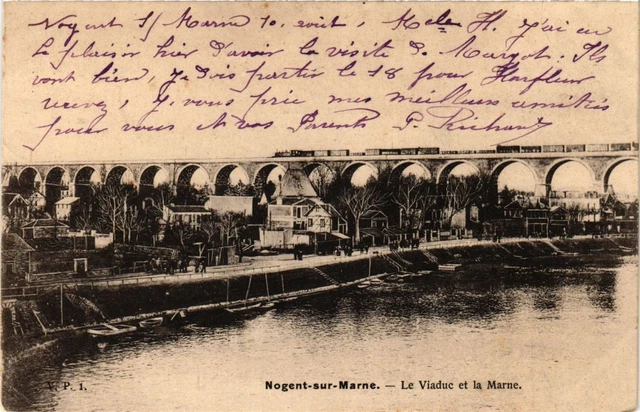 Nogent s/ Marne 10, août, Melle H. J'ai eu
le plaisir hier d'avoir la visite de Margot. Ils
vont bien, je dois partir le 18 pour Harfleur
recevez, je vous prie mes meilleurs amitiés
pour vous et vos Parents P. Richard
V. P. 1.
Nogent-sur-Marne. — Le Viaduc et la Marne.